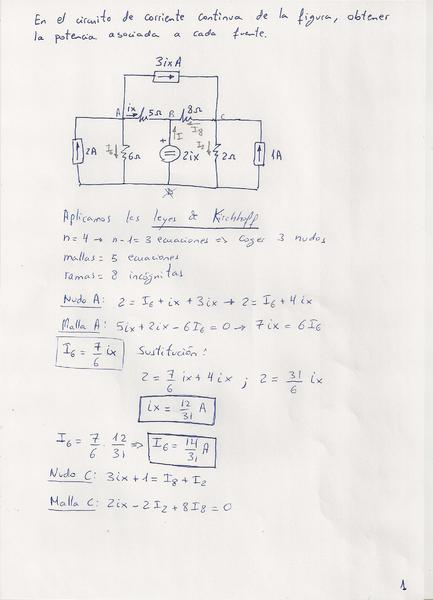 En el circuito de corriente continua de la figura, obtener
la potencia asociada a cada fuente.
3ix A
A ix 5Ω B 8Ω C
I I8
2A I6 6Ω + 2ix I2 2Ω 1A
Aplicamos las leyes de Kirchhoff
n=4 → n-1=3 ecuaciones => coger 3 nudos
mallas = 5 ecuaciones
ramas = 8 incógnitas
Nudo A: 2 = I6 + ix + 3ix → 2 = I6 + 4ix
Malla A: 5ix + 2ix - 6I6 = 0 → 7ix = 6I6
I6 = 7/6 ix Sustitución:
2 = 7/6 ix + 4ix ; 2 = 31/6 ix
ix = 12/31 A
I6 = 7/6 · 12/31 => I6 = 14/31 A
Nudo C: 3ix + 1 = I8 + I2
Malla C: 2ix - 2I2 + 8I8 = 0
1